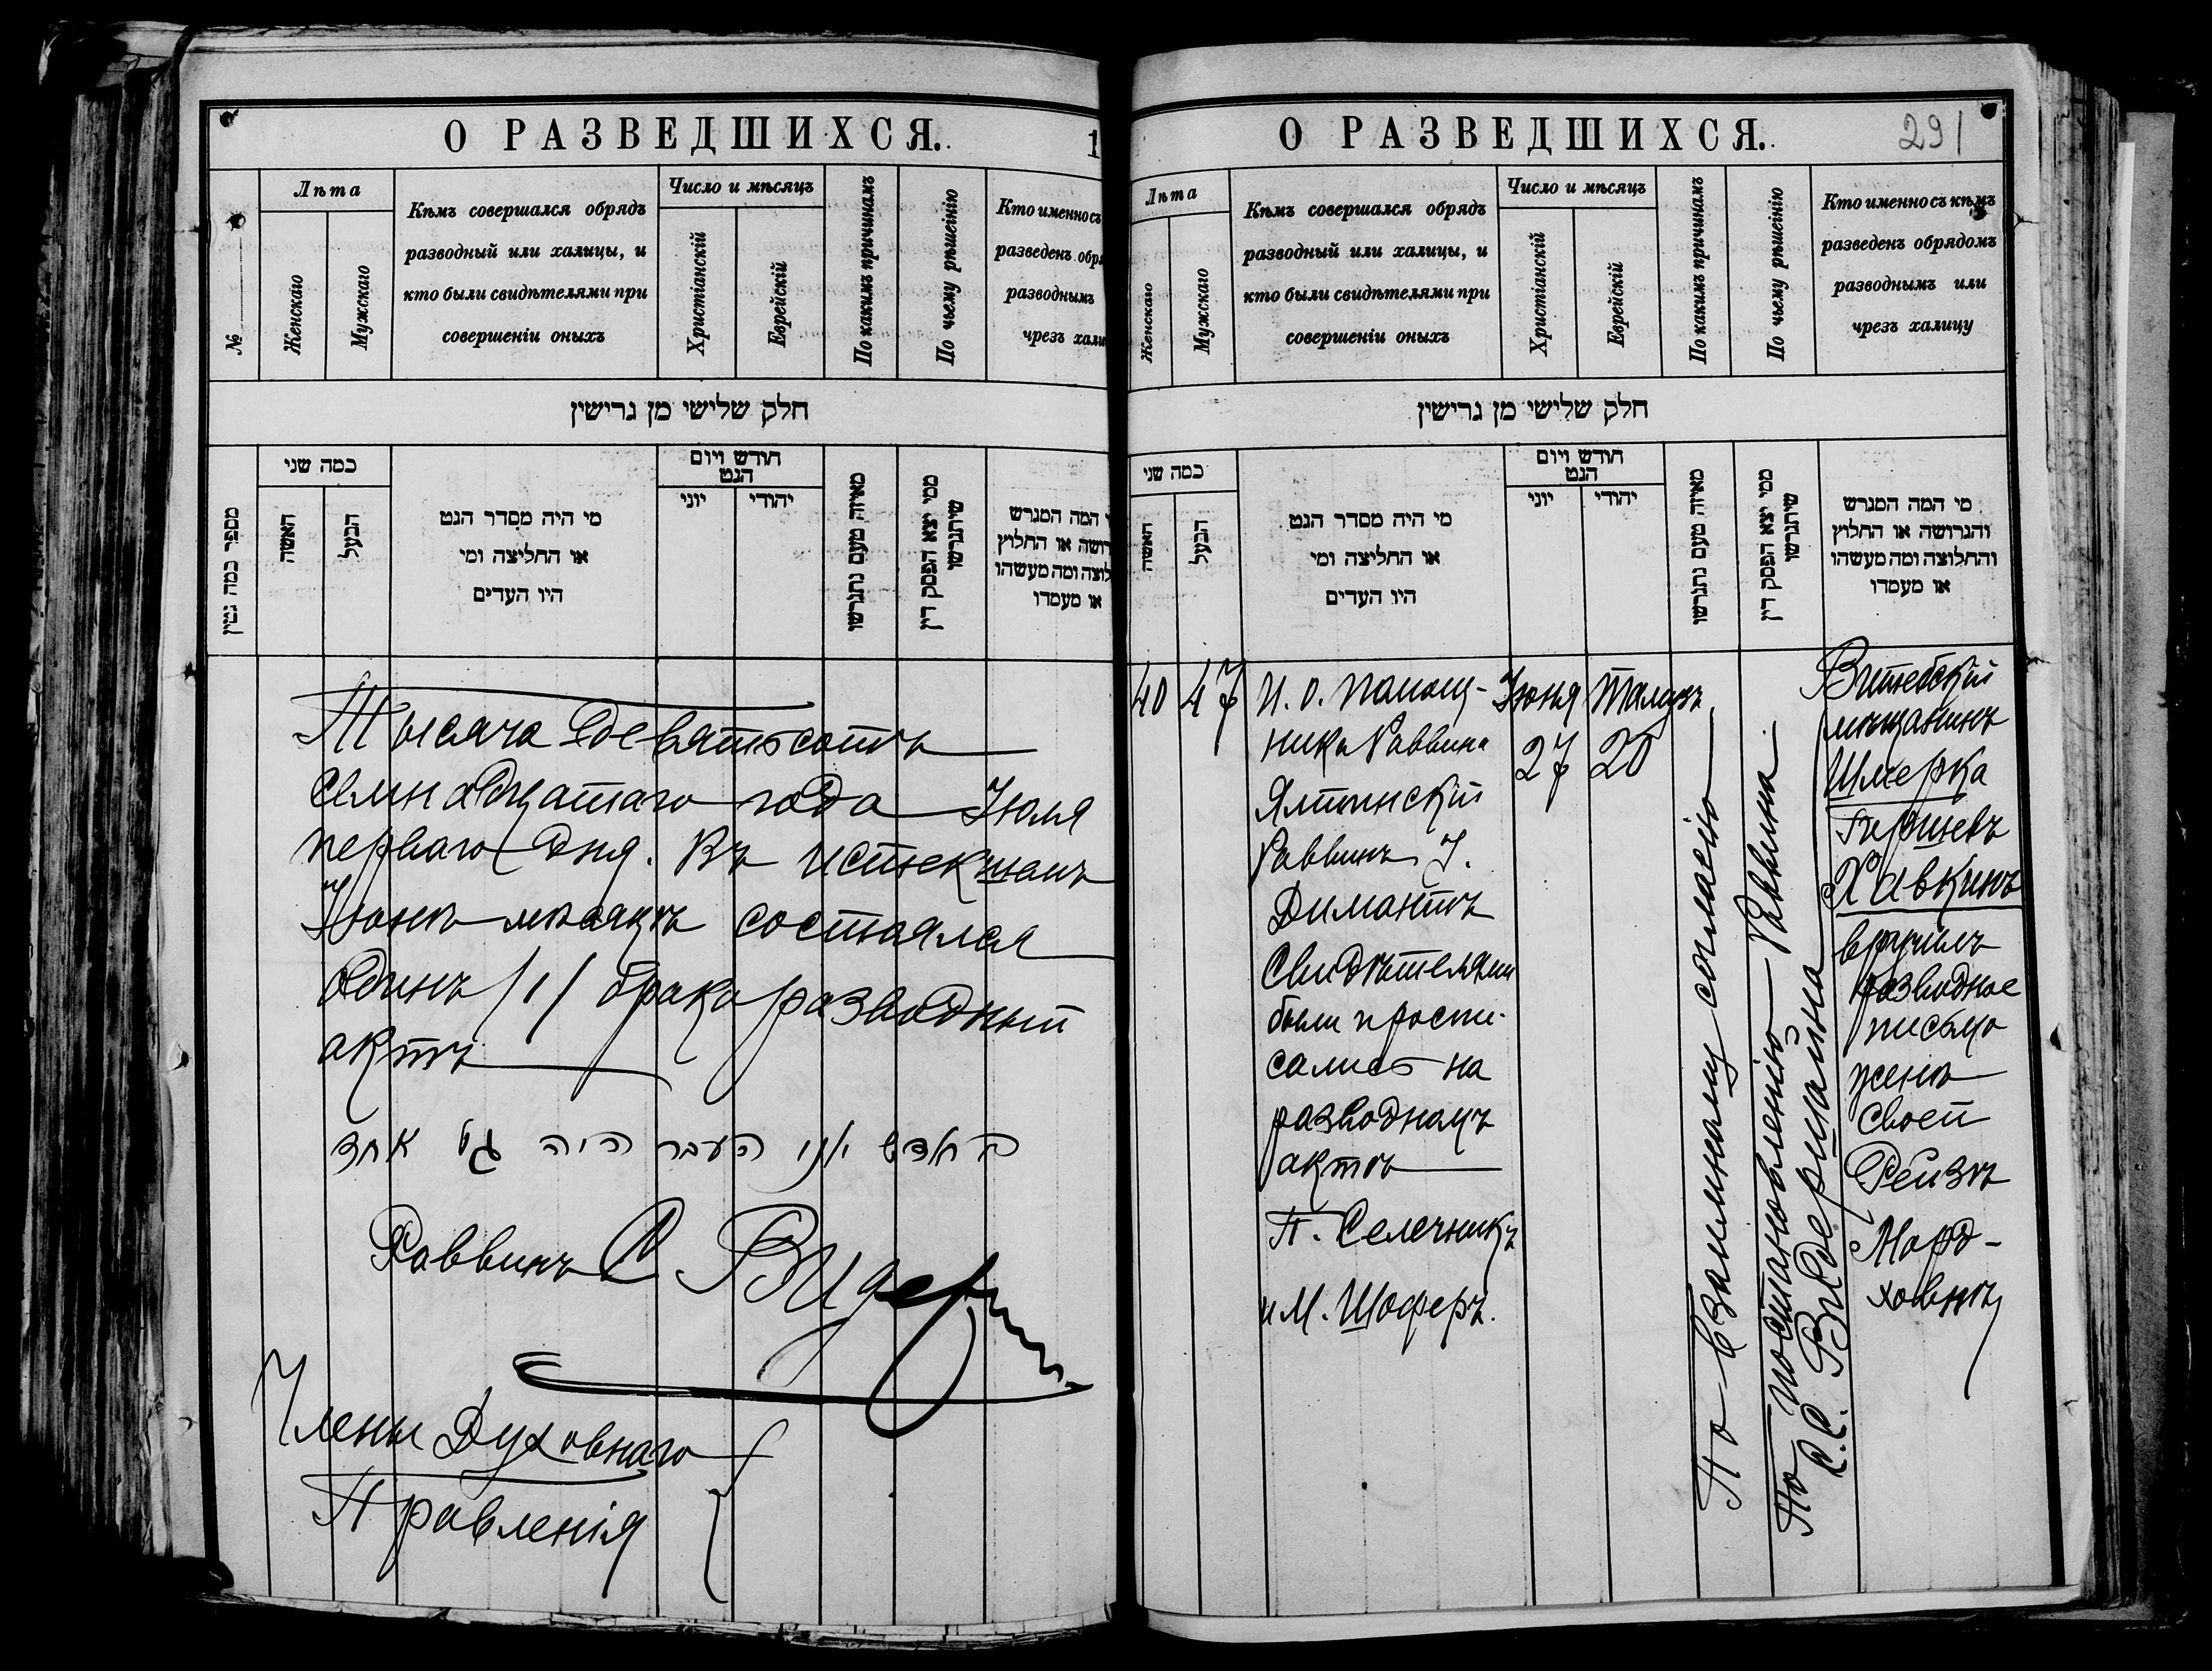 О РАЗВЕДШИХСЯ.
1
№
Лѣта
Женскаго
Мужскаго
Кѣмъ совершался обрядъ
разводный или халицы, и
кто были свидѣтелями при
совершеніи оныхъ
Число и мѣсяцъ
Христіанскій
Еврейскій
По какимъ причинамъ
По чьему рѣшенію
Кто именно съ
разведенъ обря
разводнымъ
чрезъ хали
חלק שלישי מן גרישין
מספר כמה גטין
כמה שני
האשה
הבעל
מי היה מסדר הגט
או החליצה ומי
היו העדים
חודש ויום
הגט
יוני
יהודי
מאיזה טעם נתגרשו
ממי יצא הפסק דין
שיתגרשו
המה המגרש
רושה או החלוץ
לוצה ומה מעשהו
או מעמדו
Тысяча девятьсотъ
семнадцатаго года Іюля
перваго дня. Въ истекшомъ
Іюнѣ мѣсяцѣ состоялся
одинъ /1/ бракоразводный
актъ
בחדש יוני העבר היה גט אחד
Раввинъ С Видер
Члены Духовнаго
Правленія
О РАЗВЕДШИХСЯ.
291
Лѣта
Женскаго
Мужскаго
Кѣмъ совершался обрядъ
разводный или халицы, и
кто были свидѣтелями при
совершеніи оныхъ
Число и мѣсяцъ
Христіанскій
Еврейскій
По какимъ причинамъ
По чьему рѣшенію
Кто именно съ кѣмъ
разведенъ обрядомъ
разводнымъ или
чрезъ халицу
חלק שלישי מן גרישין
כמה שני
האשה
הבעל
מי היה מסדר הגט
או החליצה ומי
היו העדים
חודש ויום
הגט
יוני
יהודי
מאיזה טעם נתגרשו
ממי יצא הפסק דין
שיתגרשו
מי המה המגרש
והגרושה או החלוץ
והחלוצה ומה מעשהו
או מעמדו
40
47
И. о. помощ-
ника Раввина
Ялтинскій
Раввинъ І.
Димантъ
Свидѣтелями
были проспи-
сались на
разводномъ
актѣ
П. Селечникъ
и М. Шоферъ.
Іюня
27
Тамузъ
20
По взаимному согласію
По постановленію Раввина
С.С. Видермайна
Витебскій
мѣщанинъ
Шмерка
Гиршевъ
Хавкинъ
вручилъ
разводное
письмо
женѣ
своей
Рейзѣ
Морд-
ховнѣ